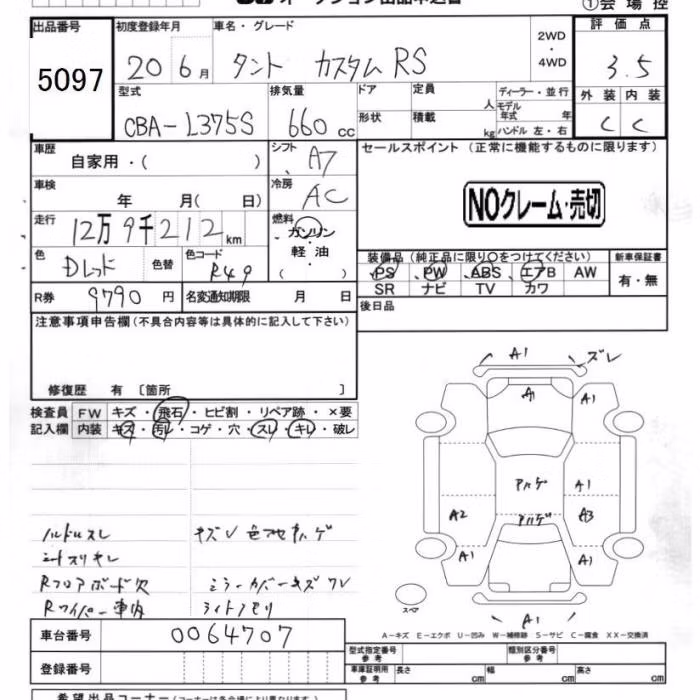 オークション出品申込書
①会場控
出品番号 初度登録年月 車名・グレード 2WD・4WD 評価点
5097 20 6月 タント カスタム RS 3.5
型式 排気量 ドア 定員 人 ディーラー・並行 外装 内装
CBA-L375S 660 cc 形状 積載 kg モデル年式 年 ハンドル 左・右 C C
車歴 自家用・( ) シフト A7 セールスポイント (正常に機能するものに限ります)
車検 年 月( 日) 冷房 AC
NOクレーム・売切
走行 12万9千212km 燃料 ガソリン・軽油・( )
色 Dレッド 色替 色コード R49
装備品 (純正品に限り○をつけてください) 新車保証書
PS PW ABS エアB AW 有・無
SR ナビ TV カワ
R券 9790円 名変通知期限 月 日 後日品
注意事項申告欄 (不具合内容等は具体的に記入して下さい)
修復歴 有 [箇所 ]
検査員記入欄 FW キズ・飛石・ヒビ割・リペア跡・×要
内装 キズ・汚レ・コゲ・穴・スレ・キレ・破レ
A1 ズレ
A1 A1
アハゲ A1
A2 アハゲ A3
A1 A1
A1
スペア
ハンドルスレ キズV 色アセ ハゲ
シートスリキレ
Rフロアボード欠 ミラーカバーキズ ワレ
Rワイパー車内 ライトクモリ
A-キズ E-エクボ U-凹み W-補修跡 S-サビ C-腐食 XX-交換済
車台番号 0064707
型式指定番号 参考 類別区分番号 参考
登録番号
車庫証明用 参考 長さ cm 幅 cm 高さ cm
希望出品コーナー (コーナーは各会場により異なります)